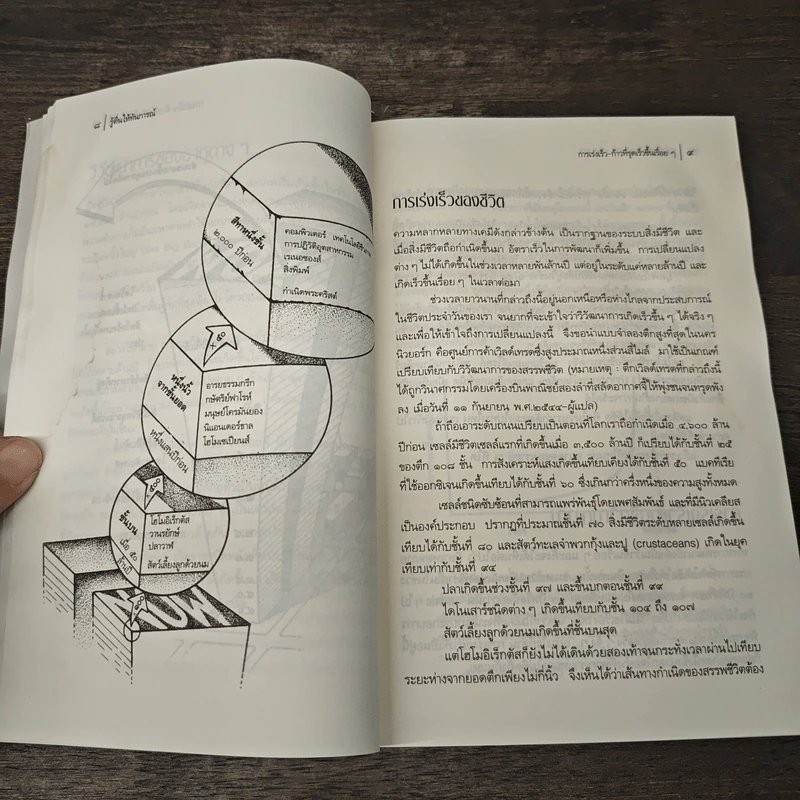 ๘ / รู้ตื่นให้ทันการณ์
สีทาหนึ่งชั้น
๒,๐๐๐ ปีก่อน
คอมพิวเตอร์ เทคโนโลยี
การปฏิวัติอุตสาหกรรม
เรเนอซองส์
สิ่งพิมพ์
กำเนิดพระคริสต์
× ๕๐
หนึ่งนิ้ว
จากชั้นยอด
หนึ่งแสนปีก่อน
อารยธรรมกรีก
กษัตริย์ฟาโรห์
มนุษย์โครมันยอง
นีแอนเดอร์ธาล
โฮโมเซเปียนส์
ชั้นบน
เมื่อ ๕๐
ล้านปี
โฮโมอิเร็กตัส
วานรยักษ์
ปลาวาฬ
สัตว์เลี้ยงลูกด้วยนม
NOW
การเร่งเร็ว-ก้าวที่รุดเร็วขึ้นเรื่อย ๆ | ๙
การเร่งเร็วของชีวิต
ความหลากหลายทางเคมีดังกล่าวข้างต้น เป็นรากฐานของระบบสิ่งมีชีวิต และ
เมื่อสิ่งมีชีวิตถือกำเนิดขึ้นมา อัตราเร็วในการพัฒนาก็เพิ่มขึ้น การเปลี่ยนแปลง
ต่าง ๆ ไม่ได้เกิดขึ้นในช่วงเวลาหลายพันล้านปี แต่อยู่ในระดับแค่หลายล้านปี และ
เกิดเร็วขึ้นเรื่อย ๆ ในเวลาต่อมา
ช่วงเวลายาวนานที่กล่าวถึงนี้อยู่นอกเหนือหรือห่างไกลจากประสบการณ์
ในชีวิตประจำวันของเรา จนยากที่จะเข้าใจว่าวิวัฒนาการเกิดเร็วขึ้น ๆ ได้จริง ๆ
และเพื่อให้เข้าใจถึงการเปลี่ยนแปลงนี้ จึงขอนำแบบจำลองตึกสูงที่สุดในนคร
นิวยอร์ก คือศูนย์การค้าเวิลด์เทรดซึ่งสูงประมาณหนึ่งส่วนสี่ไมล์ มาใช้เป็นเกณฑ์
เปรียบเทียบกับวิวัฒนาการของสรรพชีวิต (หมายเหตุ : ตึกเวิลด์เทรดที่กล่าวถึงนี้
ได้ถูกวินาศกรรมโดยเครื่องบินพาณิชย์สองลำที่สลัดอากาศจี้ให้พุ่งชนจนทรุดพัง
ลง เมื่อวันที่ ๑๑ กันยายน พ.ศ.๒๕๔๔-ผู้แปล)
ถ้าถือเอาระดับถนนเปรียบเป็นตอนที่โลกเราถือกำเนิดเมื่อ ๔,๖๐๐ ล้าน
ปีก่อน เซลล์มีชีวิตเซลล์แรกที่เกิดขึ้นเมื่อ ๓,๕๐๐ ล้านปี ก็เปรียบได้กับชั้นที่ ๒๕
ของตึก ๑๐๘ ชั้น การสังเคราะห์แสงเกิดขึ้นเทียบเคียงได้กับชั้นที่ ๕๐ แบคทีเรีย
ที่ใช้ออกซิเจนเกิดขึ้นเทียบได้กับชั้นที่ ๖๐ ซึ่งเกินกว่าครึ่งหนึ่งของความสูงทั้งหมด
เซลล์ชนิดซับซ้อนที่สามารถแพร่พันธุ์โดยเพศสัมพันธ์ และที่มีนิวเคลียส
เป็นองค์ประกอบ ปรากฏที่ประมาณชั้นที่ ๗๐ สิ่งมีชีวิตระดับหลายเซลล์เกิดขึ้น
เทียบได้กับชั้นที่ ๘๐ และสัตว์ทะเลจำพวกกุ้งและปู (crustaceans) เกิดในยุค
เทียบเท่ากับชั้นที่ ๙๔
ปลาเกิดขึ้นช่วงชั้นที่ ๙๗ และขึ้นบกตอนชั้นที่ ๙๙
ไดโนเสาร์ชนิดต่าง ๆ เกิดขึ้นเทียบกับชั้น ๑๐๔ ถึง ๑๐๗
สัตว์เลี้ยงลูกด้วยนมเกิดขึ้นที่ชั้นบนสุด
แต่โฮโมอิเร็กตัสก็ยังไม่ได้เดินด้วยสองเท้าจนกระทั่งเวลาผ่านไปเทียบ
ระยะห่างจากยอดตึกเพียงไม่กี่นิ้ว จึงเห็นได้ว่าเส้นทางกำเนิดของสรรพชีวิตต้อง